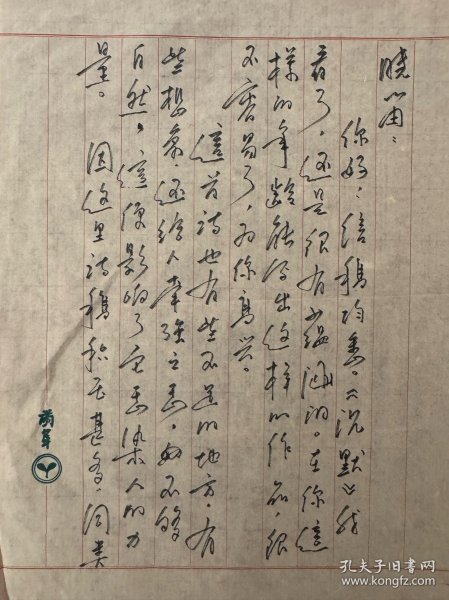 晓笛：
你好！信稿均悉。《沉默》我
看了，还是很有蕴涵的。在你这
样的年龄能写出这样的作品，很
不容易了，为你高兴。
这首诗也有些不足的地方，有
些想象还给人牵强之感，如不够
自然，这便影响了它感染人的力
量。因这里诗稿积压甚多，同类
萌芽
孔夫子旧书网
www.kongfz.com